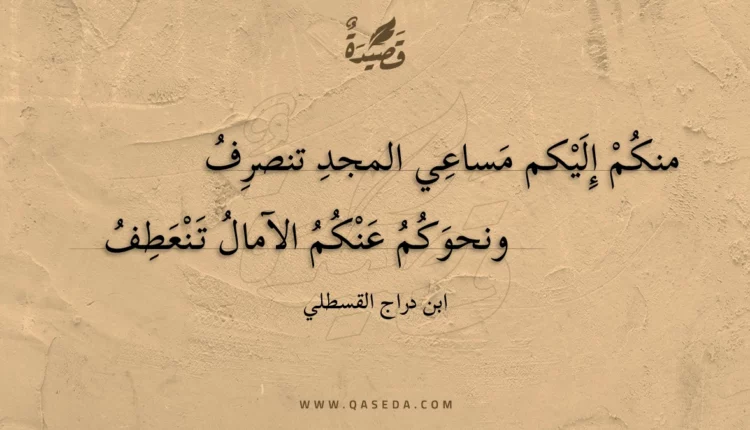 قَصِيْدَةٌ
منكُمْ إِلَيْكم مَساعِي المجدِ تنصرِفُ
ونحوَكُمُ عَنْكُمُ الآمالُ تَنْعَطِفُ
ابن دراج القسطلي
WWW.QASEDA.COM